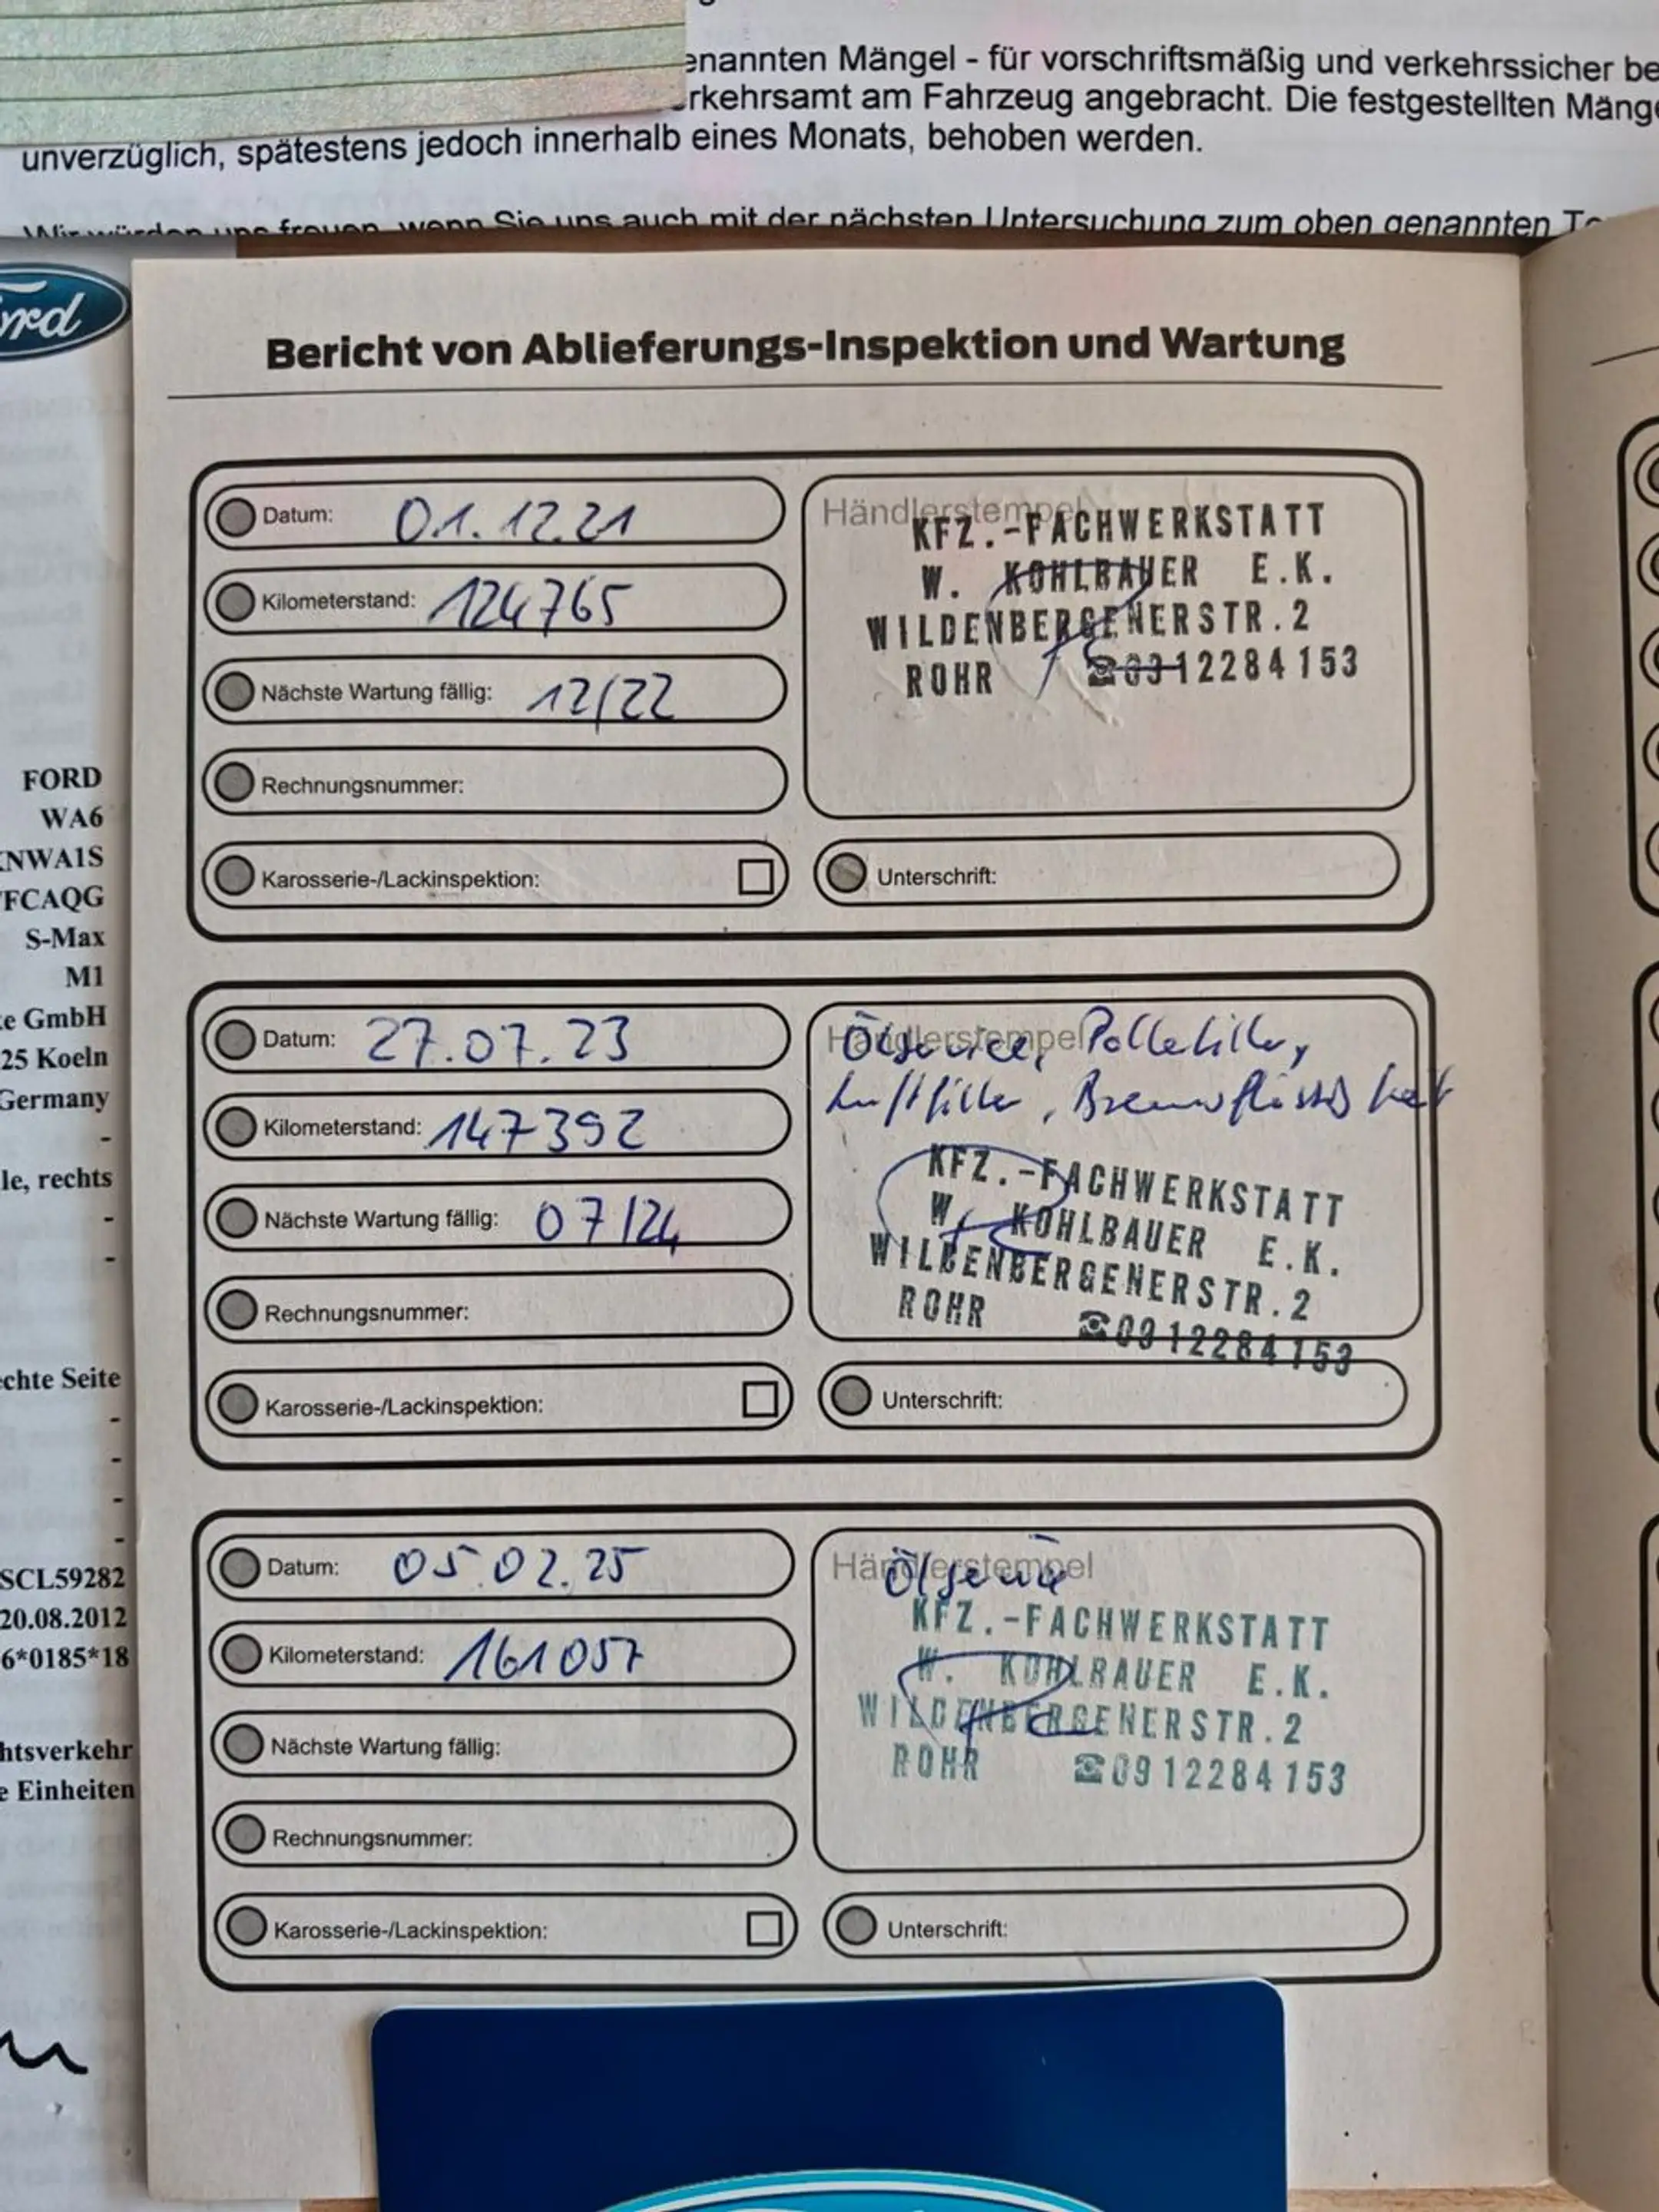 enannten Mängel - für vorschriftsmäßig und verkehrssicher be
rkehrsamt am Fahrzeug angebracht. Die festgestellten Mänge
unverzüglich, spätestens jedoch innerhalb eines Monats, behoben werden.
Wir würden uns freuen, wenn Sie uns auch mit der nächsten Untersuchung zum oben genannten Te
Ford
Bericht von Ablieferungs-Inspektion und Wartung
Datum: 01.12.21
Kilometerstand: 124765
Nächste Wartung fällig: 12/22
Rechnungsnummer:
Karosserie-/Lackinspektion:
Händlerstempel
KFZ.-FACHWERKSTATT
W. KOHLBAUER E.K.
WILDENBERGENERSTR.2
ROHR ☎0912284153
Unterschrift:
Datum: 27.07.23
Kilometerstand: 147392
Nächste Wartung fällig: 07/24
Rechnungsnummer:
Karosserie-/Lackinspektion:
Händlerstempel
Ölservice, Pollefilter,
Luftfilter, Bremsflüssigkeit
KFZ.-FACHWERKSTATT
W. KOHLBAUER E.K.
WILDENBERGENERSTR.2
ROHR ☎0912284153
Unterschrift:
Datum: 05.02.25
Kilometerstand: 161057
Nächste Wartung fällig:
Rechnungsnummer:
Karosserie-/Lackinspektion:
Händlerstempel
Ölservice
KFZ.-FACHWERKSTATT
W. KOHLBAUER E.K.
WILDENBERGENERSTR.2
ROHR ☎0912284153
Unterschrift:
FORD
WA6
NWA1S
FCAQG
S-Max
M1
e GmbH
25 Koeln
Germany
-
le, rechts
-
-
chte Seite
-
-
-
-
SCL59282
20.08.2012
6*0185*18
htsverkehr
e Einheiten